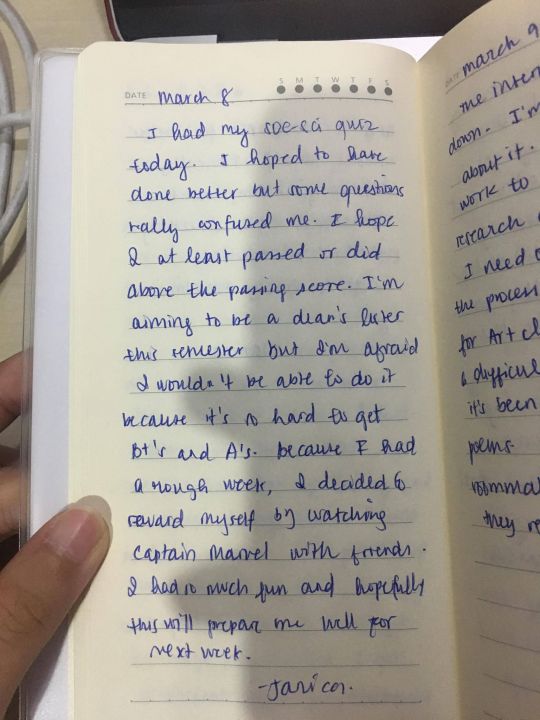 DATE March 8
S M T W T F S
I had my soc-sci quiz
today. I hoped to have
done better but some questions
rally confused me. I hope
I at least passed or did
above the passing score. I'm
aiming to be a dean's lister
this semester but I'm afraid
I wouldn't be able to do it
because it's so hard to get
B+'s and A's. Because I had
a rough week, I decided to
reward myself by watching
Captain Marvel with friends.
I had so much fun and hopefully
this will prepare me well for
next week.
DATE march 9
the inter
down. I'm
about it.
work to
research
I need
the process
for Art cl
a difficul
it's been
poems.
roommat
they re